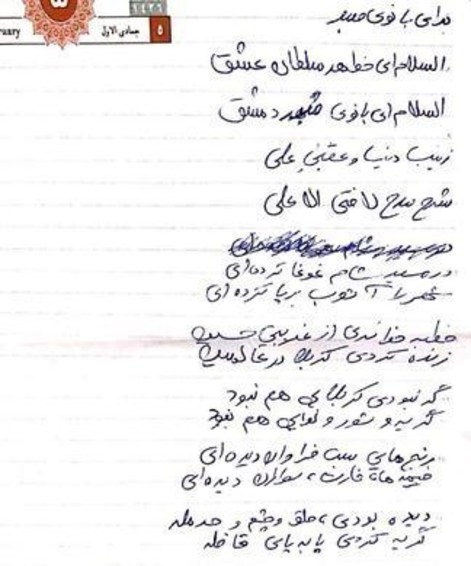 ۱۴۳۶
ruary
جمادی الاول
۵
برای بانوی صبر
السلام ای خواهر سلطان عشق
السلام ای بانوی شهر دمشق
زینب دنیا و عقبیٰ علی
شرح مدح لافتی الا علی
در مسیر شام غوغا کرده‌ای
شهر را آشوب برپا کرده‌ای
خطبه خواندی از غریبی حسین
زنده کردی کربلا در عالمین
گر نبودی کربلایی هم نبود
گریه و شور و نوایی هم نبود
رنج‌های بس فراوان دیده‌ای
خیمه‌ها، غارت، سواران دیده‌ای
دیده بودی، حلق و چشم و حرمله
گریه کردی پا به پای قافله